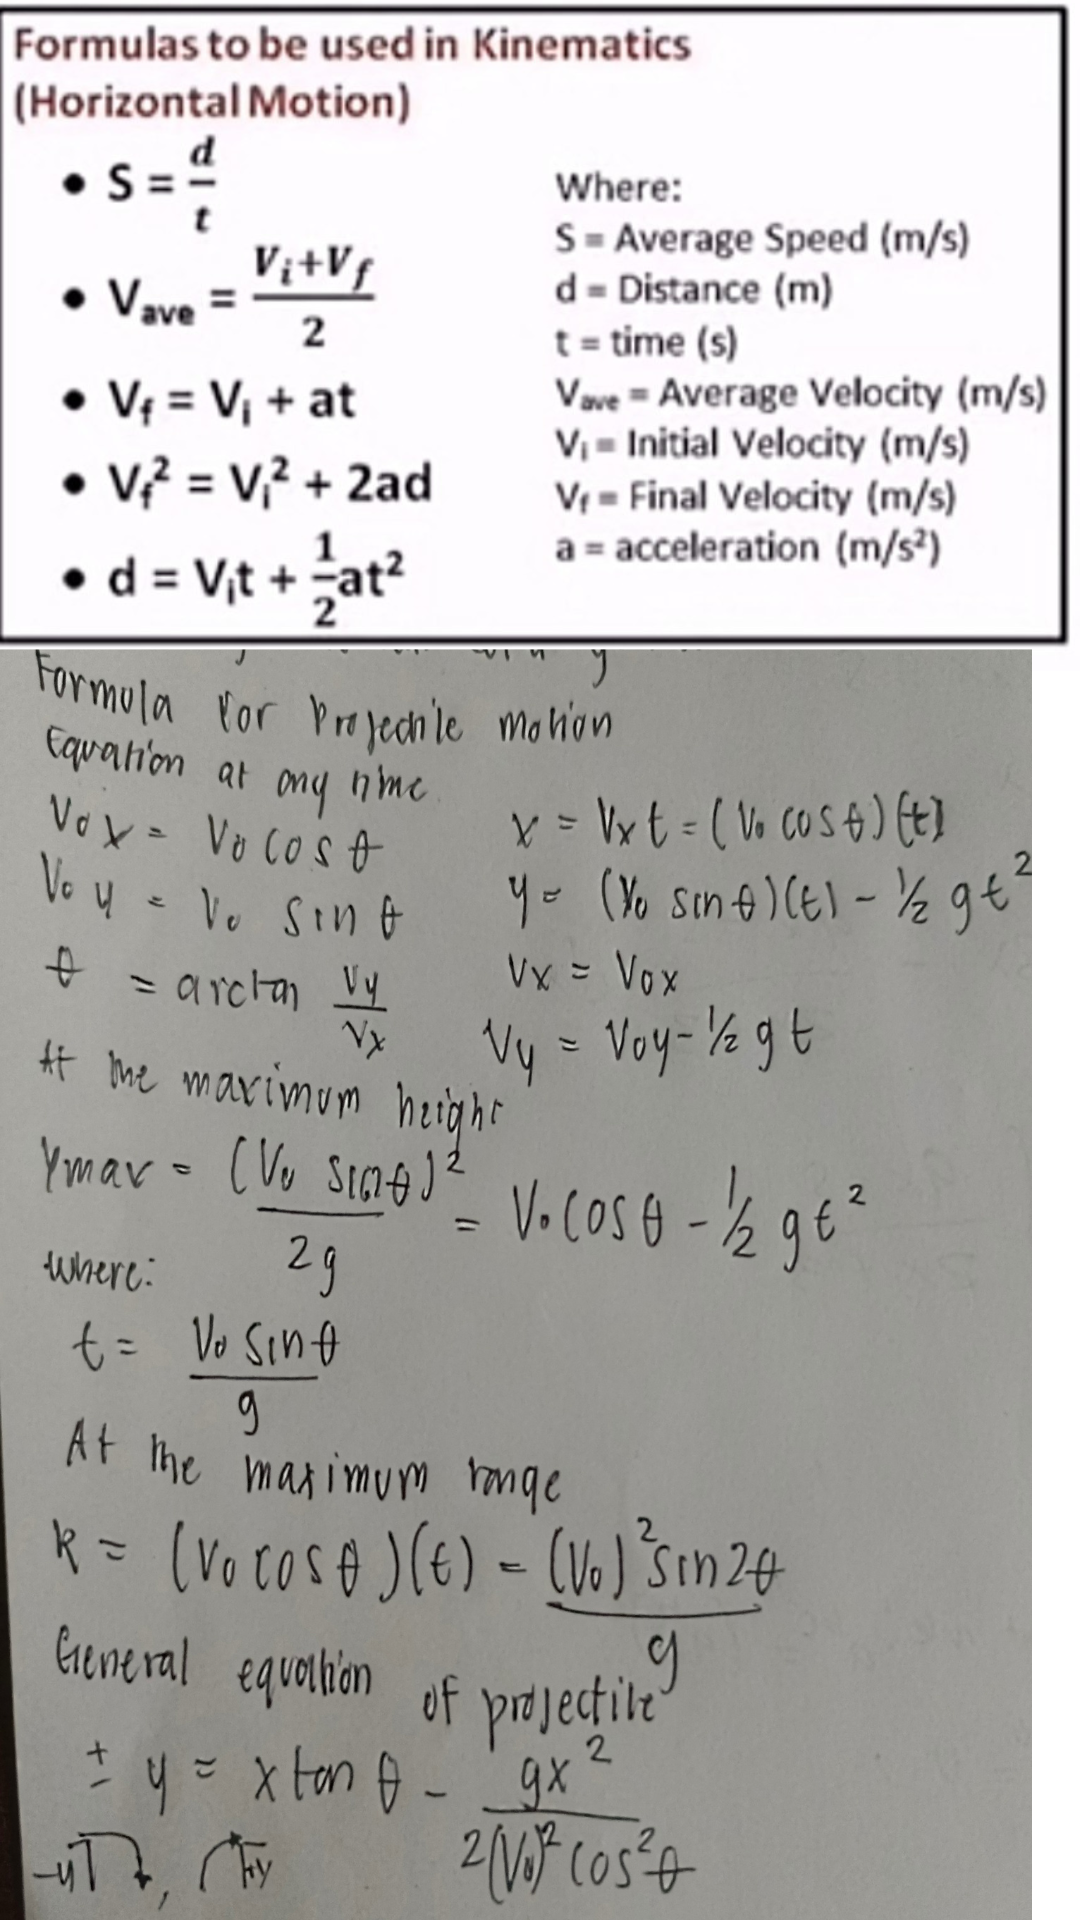 Formulas to be used in Kinematics
(Horizontal Motion)
• S = d/t
• Vave = (Vi+Vf)/2
• Vf = Vi + at
• Vf² = Vi² + 2ad
• d = Vit + 1/2at²
Where:
S = Average Speed (m/s)
d = Distance (m)
t = time (s)
Vave = Average Velocity (m/s)
Vi = Initial Velocity (m/s)
Vf = Final Velocity (m/s)
a = acceleration (m/s²)
Formula for Projectile motion
Equation at any time
Vox = Vo cos θ
Voy = Vo sin θ
θ = arctan Vy/Vx
x = Vxt = (Vo cos θ)(t)
y = (Vo sin θ)(t) - ½ gt²
Vx = Vox
Vy = Voy - ½ gt
At the maximum height
Ymax = (Vo sin θ)²/2g = Vo cos θ - ½ gt²
where:
t = Vo sin θ/g
At the maximum range
R = (Vo cos θ)(t) = (Vo)² sin 2θ/g
General equation of projectile
± y = x tan θ - gx²/2(Vo)² cos² θ
-y, +y